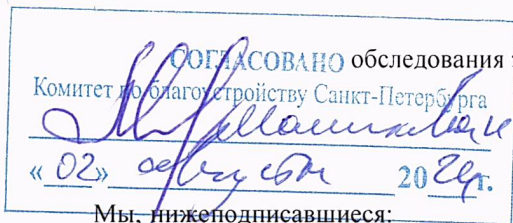 СОГЛАСОВАНО обследования
Комитет по благоустройству Санкт-Петербурга
«02» августа 2024г.
Мы, нижеподписавшиеся: